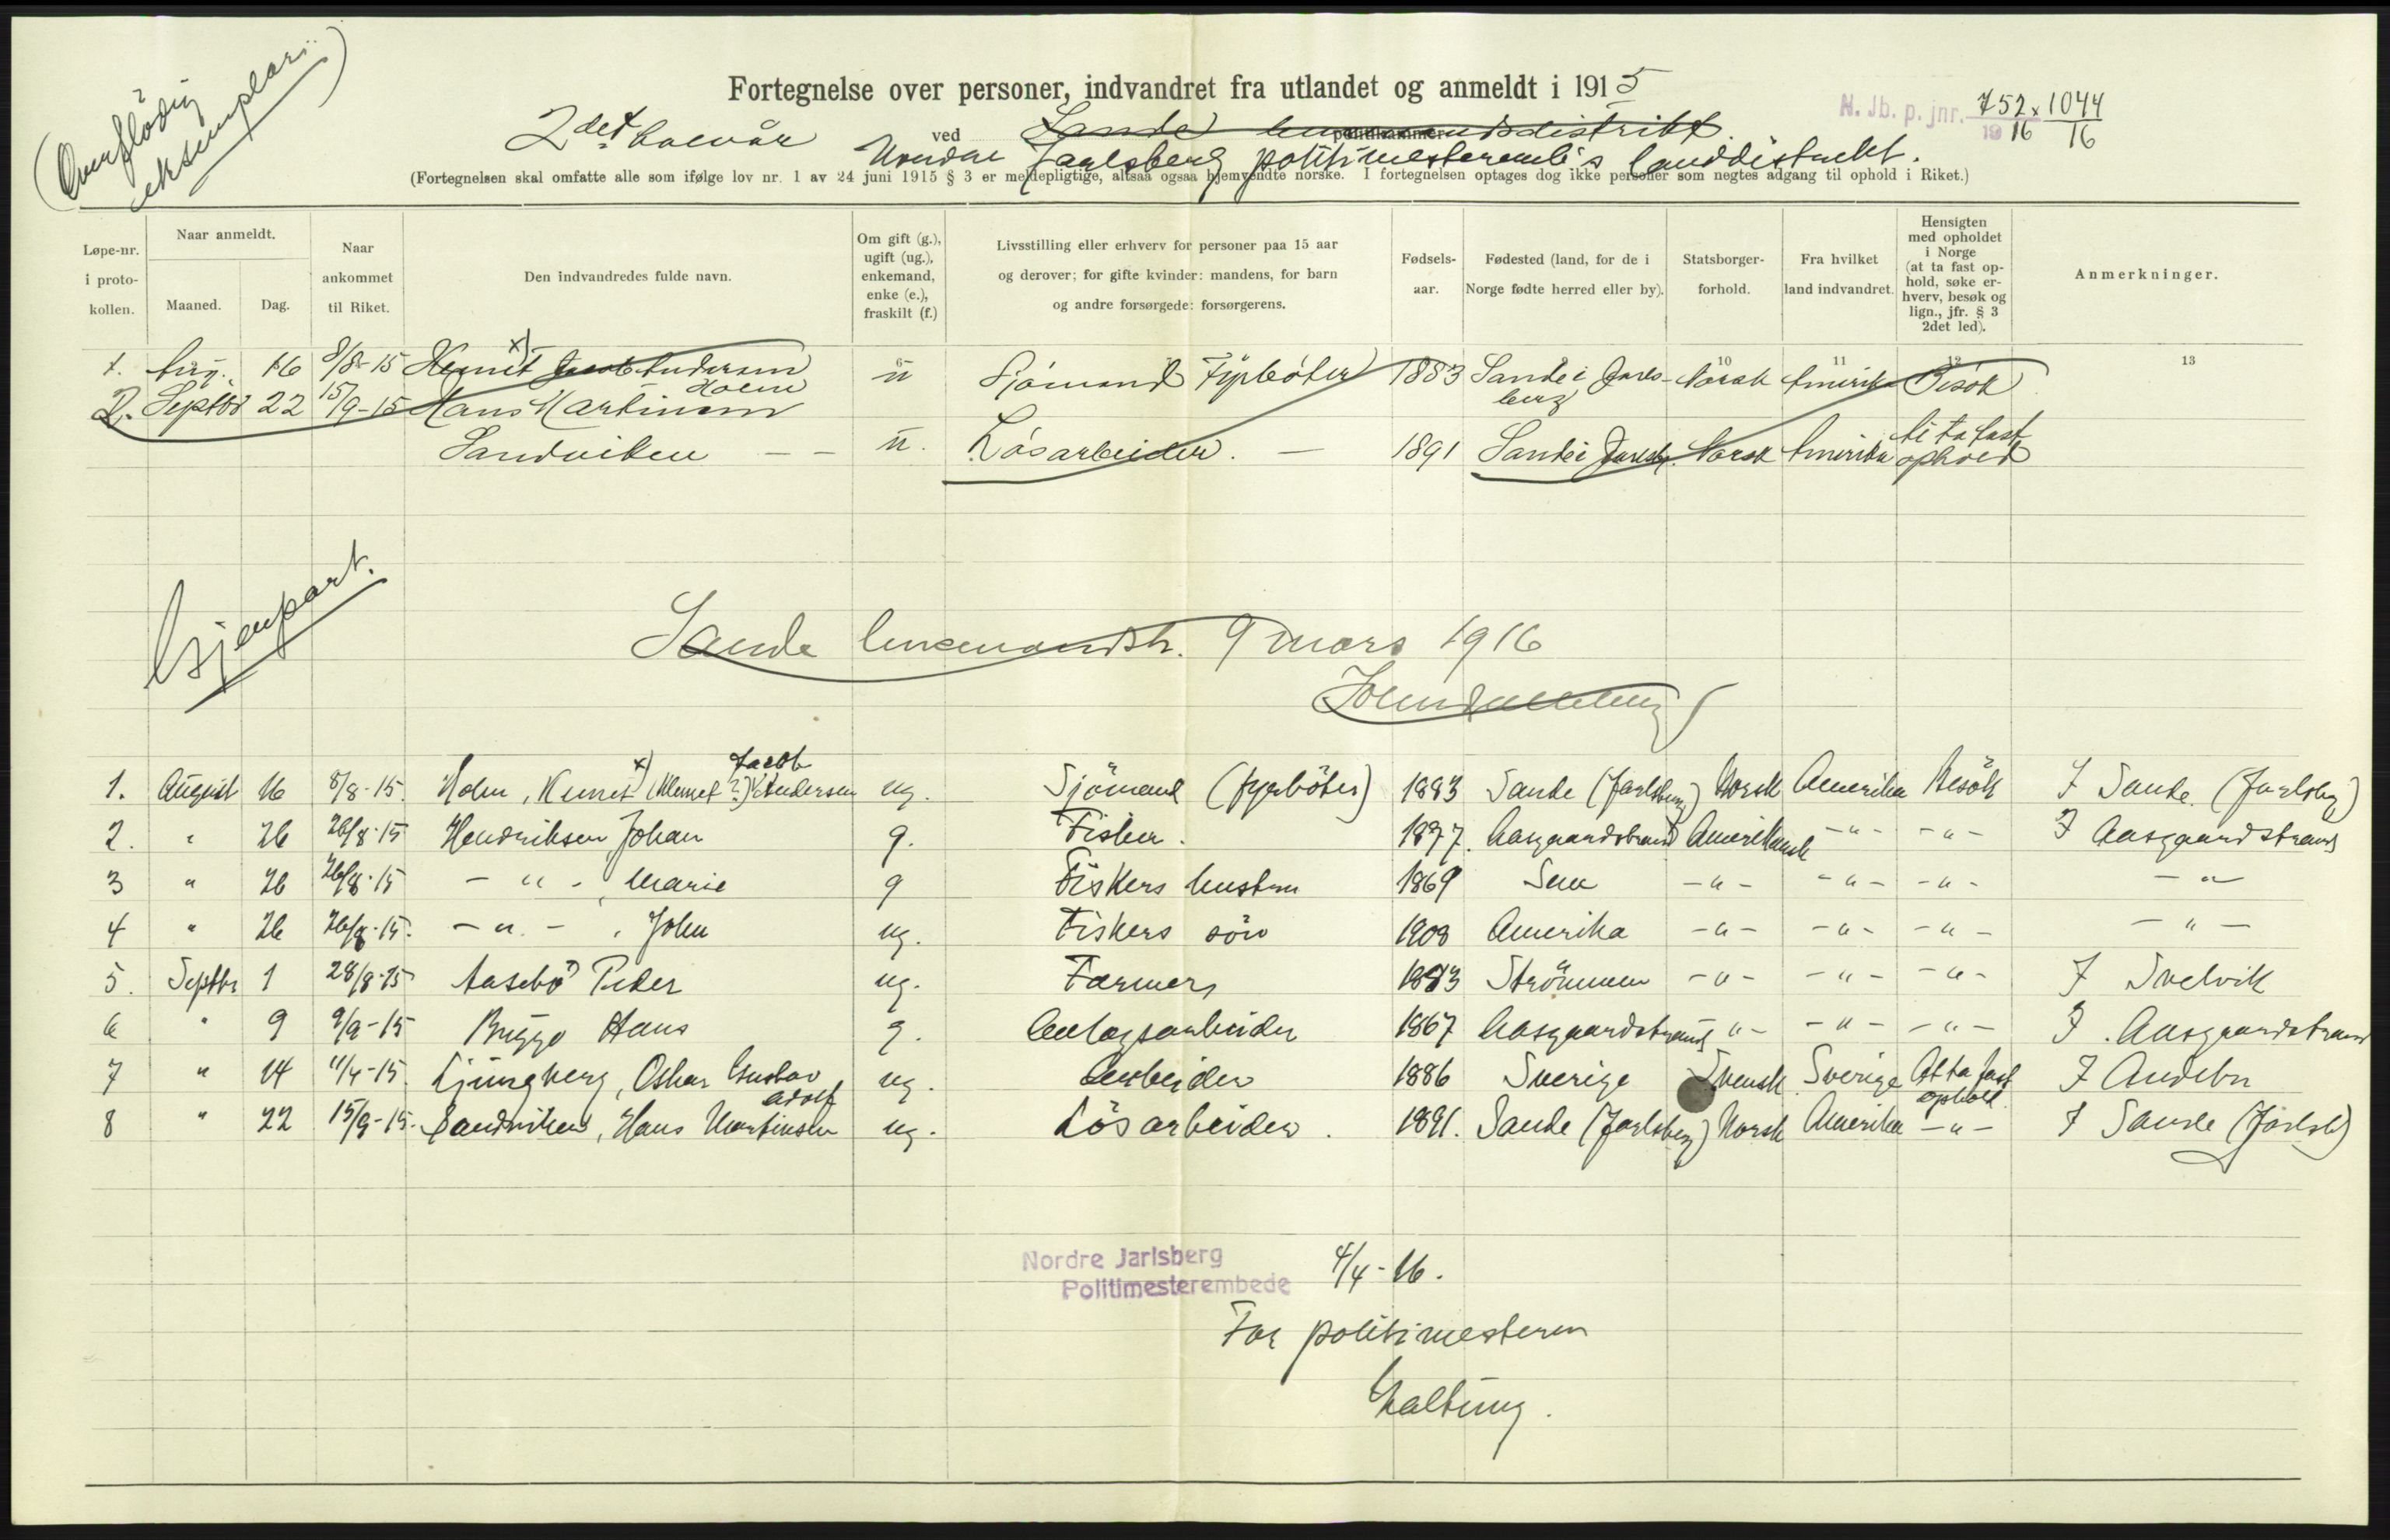 (Overflödig
eksemplar)
Fortegnelse over personer, indvandret fra utlandet og anmeldt i 1915
N. Jb. p. jnr. 752/1916 x 1044/16
2det halvår ved Sande lensmandsdistrikt politikammer
Nordre Jarlsberg politimesterembeds landdistrikt.
(Fortegnelsen skal omfatte alle som ifølge lov nr. 1 av 24 juni 1915 § 3 er meldepligtige, altsaa ogsaa hjemvendte norske. I fortegnelsen optages dog ikke personer som negtes adgang til ophold i Riket.)
Løpe-nr. i proto-kollen. Naar anmeldt. Maaned. Dag. Naar ankommet til Riket. Den indvandredes fulde navn. Om gift (g.), ugift (ug.), enkemand, enke (e.), fraskilt (f.) Livsstilling eller erhverv for personer paa 15 aar og derover; for gifte kvinder: mandens, for barn og andre forsørgede: forsørgerens. Fødsels-aar. Fødested (land, for de i Norge fødte herred eller by). Statsborger-forhold. Fra hvilket land indvandret. Hensigten med opholdet i Norge (at ta fast op-hold, søke er-hverv, besøk og lign., jfr. § 3 2det led). Anmerkninger.
6 10 11 12 13
1. Aug. 16 8/8-15 Hemet x) Jacob Andersen Holm u Sjømand Fyrbøter 1883 Sande i Jarls-berg Norsk Amerika Besøk
2. Septbr 22 15/9-15 Hans Martinsen
Sandviken — — u. Løsarbeider. — 1891 Sande i Jarlsb. Norsk Amerika At ta fast ophold
Gjenpart.
Sande lensmandsk. 9 mars 1916
1. August 16 8/8-15. Holm, Hemet x) (Klemet?) Jacob Andersen ug. Sjömand (fyrböter) 1883 Sande (Jarlsberg) Norsk Amerika Besök I Sande (Jarlsbg)
2. " 26 26/8-15 Hendriksen Johan g. Fisker. 1877. Aasgaardstrand Amerikansk -"- -"- I Aasgaardstrand
3 " 26 26/8-15 -"- , Marie g Fiskers hustru 1869 Sem -"- -"- -"- -"-
4 " 26 26/8-15. -"- , John ug. Fiskers sön 1908 Amerika -"- -"- -"- -"-
5. Septbr 1 28/8-15 Aasebö Peder ug. Farmer 1883 Strömmen -"- -"- -"- I Svelvik
6 " 9 9/9-15 Brygge Hans g. Anlegsarbeider 1867 Aasgaardstrand -"- -"- -"- I Aasgaardstrand
7 " 14 11/4-15. Ljungberg, Oskar Gustav Adolf ug. Arbeider 1886 Sverige Svensk Sverige At ta fast ophold I Andebu
8 " 22 15/9-15. Sandviken, Hans Martinsen ug. Lösarbeider. 1891. Sande (Jarlsberg) Norsk Amerika -"- I Sande (Jarlsb)
Nordre Jarlsberg
Politimesterembede
4/4-16.
For politimesteren